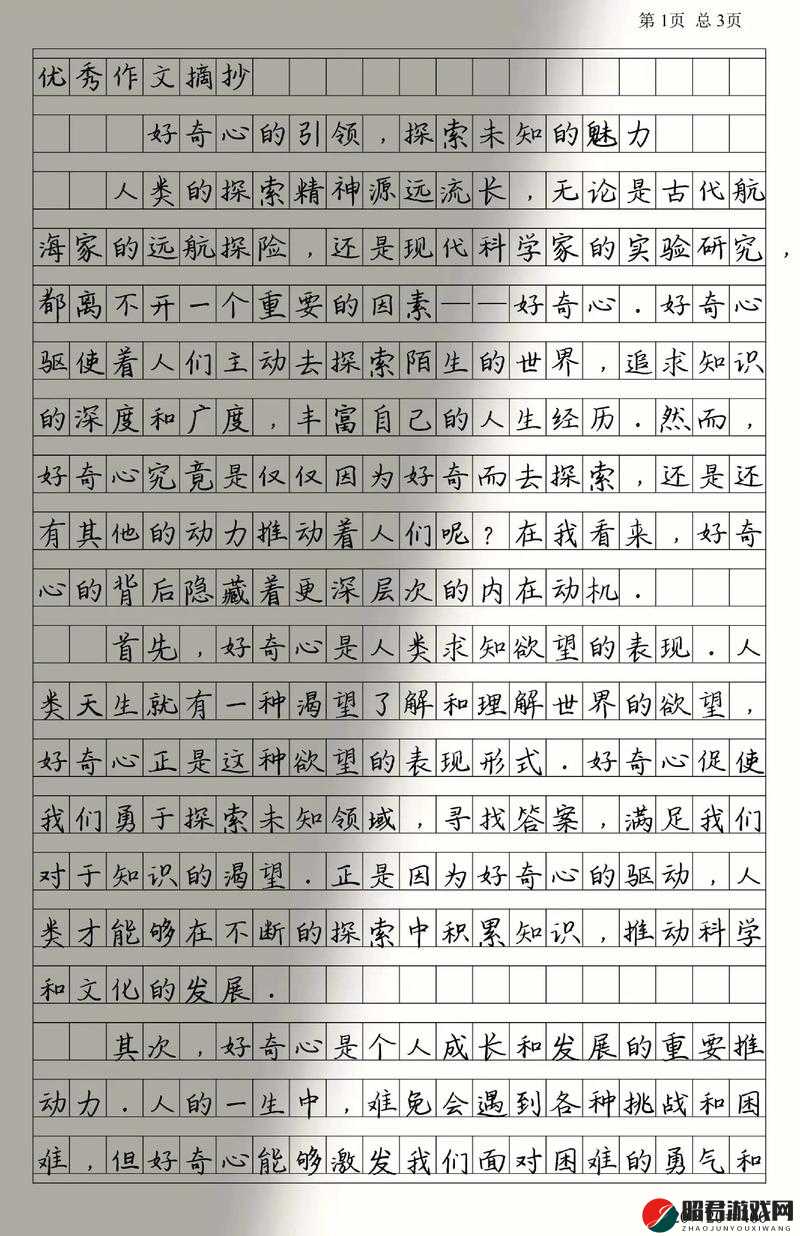 第1页 总3页
优秀作文摘抄
好奇心的引领，探索未知的魅力
人类的探索精神源远流长，无论是古代航
海家的远航探险，还是现代科学家的实验研究，
都离不开一个重要的因素——好奇心．好奇心
驱使着人们主动去探索陌生的世界，追求知识
的深度和广度，丰富自己的人生经历．然而，
好奇心究竟是仅仅因为好奇而去探索，还是还
有其他的动力推动着人们呢？在我看来，好奇
心的背后隐藏着更深层次的内在动机．
首先，好奇心是人类求知欲望的表现．人
类天生就有一种渴望了解和理解世界的欲望，
好奇心正是这种欲望的表现形式．好奇心促使
我们勇于探索未知领域，寻找答案，满足我们
对于知识的渴望．正是因为好奇心的驱动，人
类才能够在不断的探索中积累知识，推动科学
和文化的发展．
其次，好奇心是个人成长和发展的重要推
动力．人的一生中，难免会遇到各种挑战和困
难，但好奇心能够激发我们面对困难的勇气和
昭君游戏网
ZHAOJUNYOUXIWANG